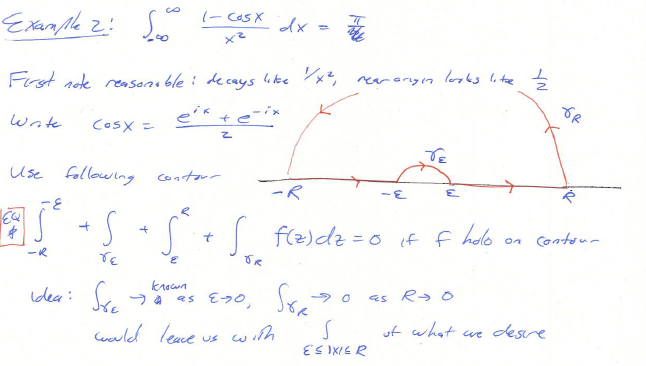 Example 2: ∫_{-∞}^{∞} (1-cosx)/x² dx = π
First note reasonable: decays like 1/x², near origin looks like 1/2
Write cosx = (e^{ix} + e^{-ix})/2
γ_R
γ_ε
Use following contour
-R -ε ε R
EQ $ ∫_{-R}^{-ε} + ∫_{γ_ε} + ∫_{ε}^{R} + ∫_{γ_R} f(z)dz = 0 if f holo on contour
Idea: ∫_{γ_ε} → known as ε→0, ∫_{γ_R} → 0 as R→0
would leave us with ∫_{ε≤|x|≤R} of what we desire